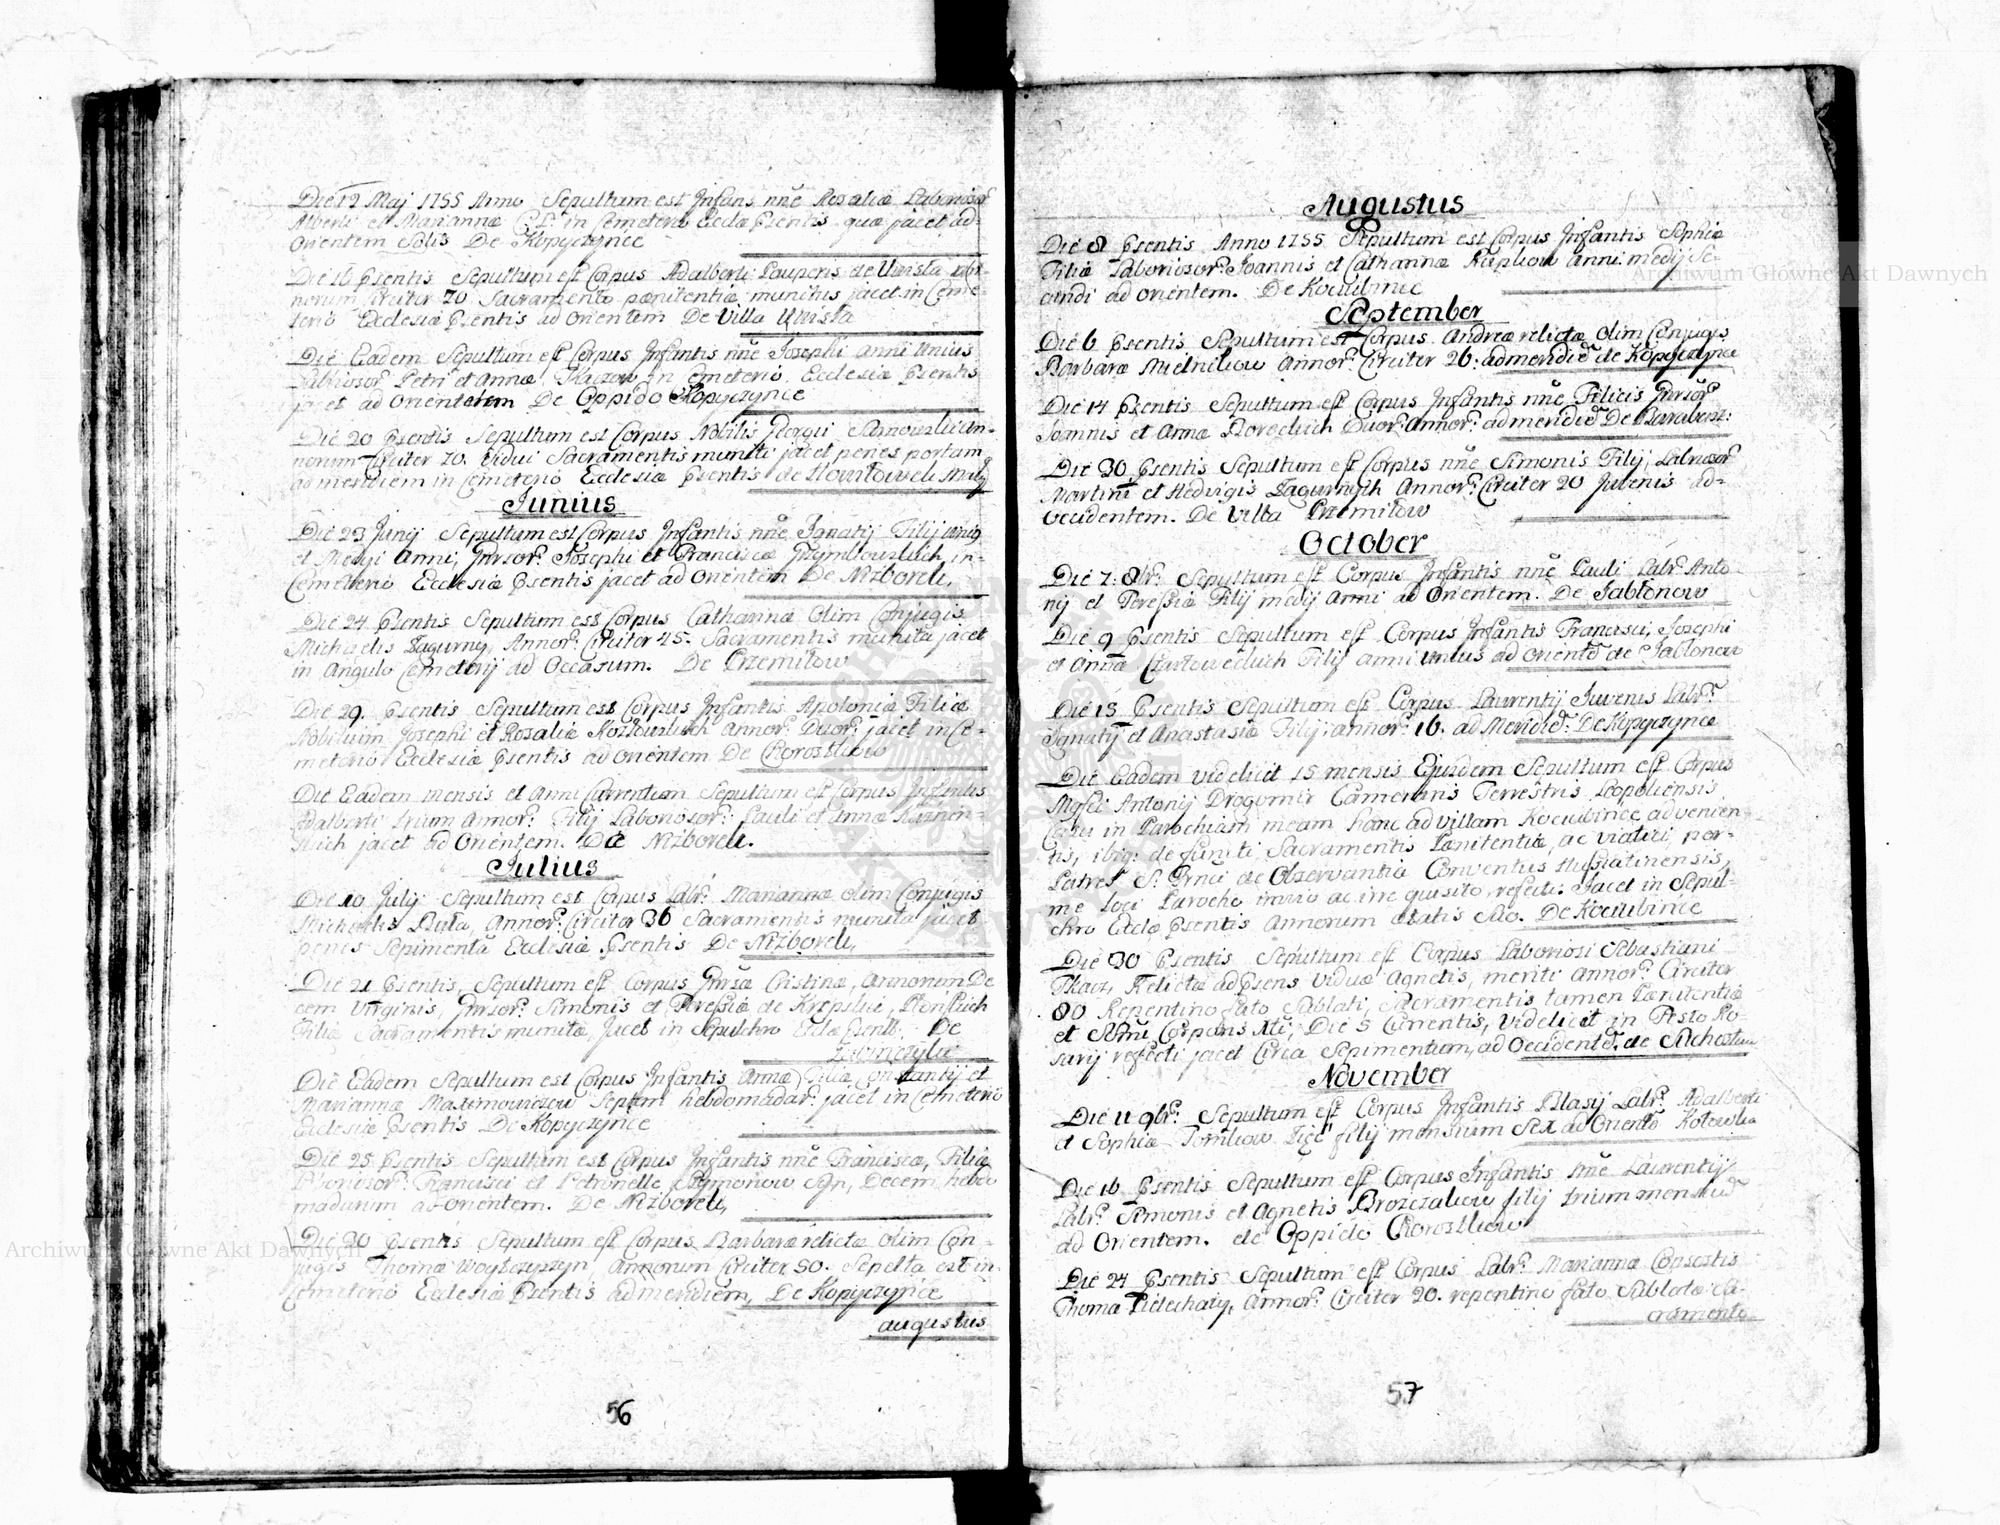 Die 12 Maj 1755 Anno Sepultum est Infans nñe Rosaliæ Laboriosor
Alberti et Mariannæ in Cemeterio Ecclæ Psentis quæ jacet ad
Orientem Solis De Kopyczynce
Die 16 Psentis Sepultum est Corpus Adalberti Pauperis de Uwisla an-
norum Circiter 70 Sacramento pænitentiæ munitus jacet in Ceme-
terio Ecclesiæ Psentis ad Orientem De Villa Uwisla
Die Eadem Sepultum est Corpus Infantis nñe Josephi anni Unius
Laboriosor Petri et Annæ in Cmeterio Ecclesiæ Psentis
jacet ad Orientem De Oppido Kopyczynce
Die 20 Psentis Sepultum est Corpus Nobilis Georgii an-
norum Circiter 70. Vidui Sacramentis muniti jacet penes portam
ad meridiem in Cemeterio Ecclesiæ Psentis de
Junius
Die 23 Junij Sepultum est Corpus Infantis nñe Ignatij Filij unig
et Medij Anni, Gnrsor: Josephi et Franciscæ in-
Cemeterio Ecclesiæ Psentis jacet ad Orientem De Niżborek,
Die 24 Psentis Sepultum est Corpus Catharinæ Olim Conjugis
Michaelis Zagurny, Annor: Circiter 45. Sacramentis munita jacet
in Angulo Cemeterij ad Occasum. De Przemiłow
Die 29. Psentis Sepultum est Corpus Infantis Apoloniæ Filiæ
Nobilium Josephi et Rosaliæ Kozłowskich Annor: Duor: jacet in Ce-
meterio Ecclesiæ Psentis ad Orientem De Chorostkow
Die Eadem mensis et Anni Currentium Sepultum est Corpus Infantis
Adalberti trium Annor: Filij Laboriosor: Pauli et Annæ
jacet ad Orientem. De Niżborek.
Julius
Die 10 Julij Sepultum est Corpus Labr: Mariannæ olim Conjugis
Michaelis Annor: Circiter 36 Sacramentis munita jacet
penes Sepimenta Ecclesiæ Psentis De Niżborek,
Die 21 Psentis, Sepultum est Corpus Gnrsæ Cristinæ, Annorum De
cem Virginis, Gnrsor: Simonis et Teressiæ de
Filiæ Sacramentis munitæ, Jacet in Sepulchro Ecclæ Psentis. De
Die Eadem Sepultum est Corpus Infantis Annæ Filiæ Constantij et
Mariannæ Maximowiczow Septem hebdomadar: jacet in Cemeterio
Ecclesiæ Psentis De Kopyczynce
Die 25 Psentis Sepultum est Corpus Infantis nñe Franciscæ, Filiæ
Laboriosor: Francisci et Petronelle Decem hebdo
madarum ad Orientem. De Niżborek,
Die 30 Psentis Sepultum est Corpus Barbaræ relictæ olim Con-
jugis Thomæ Annorum Circiter 50. Sepelta est in
Cemeterio Ecclesiæ Psentis ad meridiem, De Kopyczynce
augustus
56
Augustus
Die 8 Psentis Anno 1755 Sepultum est Corpus Infantis Sophiæ
Filiæ Laboriosor: Joannis et Catharinæ anni: medij Se-
cundi ad Orientem. De Kociubince
September
Die 6 Psentis Sepultum est Corpus Andreæ relictæ Olim Conjugis
Barbaræ Mielnikow Annor: Circiter 26: ad meridiem de Kopyczynce
Die 14 Psentis Sepultum est Corpus Infantis nñe Filicis Gnrsor
Joannis et Annæ Duor: Annor: ad meridiē De
Die 30 Psentis Sepultum est Corpus nñe Simonis Filij Labriosor
Martini et Hedvigis Zagurnych Annor: Circiter 20 Juvenis ad-
Occidentem. De Villa Przemiłow
October
Die 7: 8br: Sepultum est Corpus Infantis nñe Pauli Labr: Anto-
nij et Teressiæ Filij medij Anni ad Orientem. De Jabłonow
Die 9 Psentis Sepultum est Corpus Infantis Francisci, Josephi
et Annæ Filij anni unius ad Oriente de Jabłonow
Die 15 Psentis Sepultum est Corpus Laurentij Juvenis Labr:
Ignatij et Anastasiæ Filij: annor: 16. ad Meridiē: De Kopyczynce
Die Eadem videlicet 15 mensis Ejusdem Sepultum est Corpus
Mgfici Antonij Drogomir Cameraris Terrestris Leopoliensis
Casu in Parochiam meam hanc ad villam Kociubince advenien-
tis, ibiq: defuncti Sacramentis Pænitentiæ, ac viatici per-
Patres S. Frnci de Observantia Conventus Husiatinensis,
me Loci Parocho invio ac inrequisito refecti. Jacet in Sepul-
chro Ecclæ Psentis Annorum ætatis Suæ. De Kociubince
Die 30 Psentis Sepultum est Corpus Laboriosi Sebastiani
Tkacz, Relictæ ad Psens Viduæ Agnetis, meriti Annor: Circiter
80 Repentino fato Sublati, Sacramentis tamen Pænitentiæ
et Corporis Xti, Die 5 Currentis, videlicet in Festo Ro-
sarij refecti jacet Circa Sepimentum, ad Occidentē de Suchostaw
November
Die 11 9br: Sepultum est Corpus Infantis Blasij Labr: Adalberti
et Sophiæ filij mensium Sex ad Orientē Kotowka
Die 16 Psentis Sepultum est Corpus Infantis nñe Laurentij
Labr: Simonis et Agnetis filij trium mensiu
ad Orientem. de Oppido Chorostkow
Die 24 Psentis Sepultum est Corpus Labr: Mariannæ Consortis
Thomæ Annor: Circiter 20. repentino fato Sublatæ Sa-
cramento
57
Archiwum Główne Akt Dawnych
Archiwum Główne Akt Dawnych